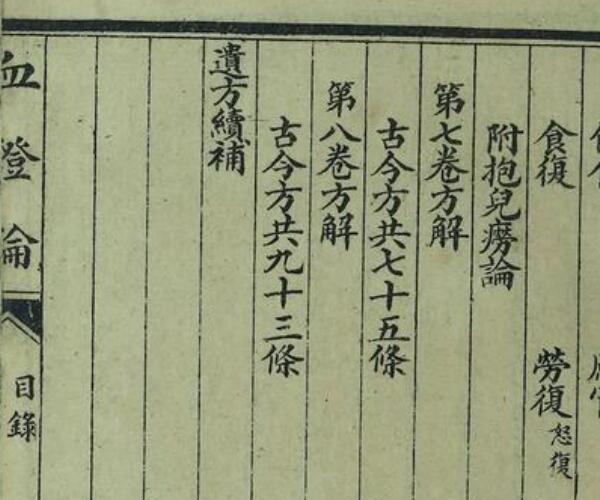 食復
勞復 怒復
附抱兒癆論
第七卷方解
古今方共七十五條
第八卷方解
古今方共九十三條
遺方續補
血證論
目錄